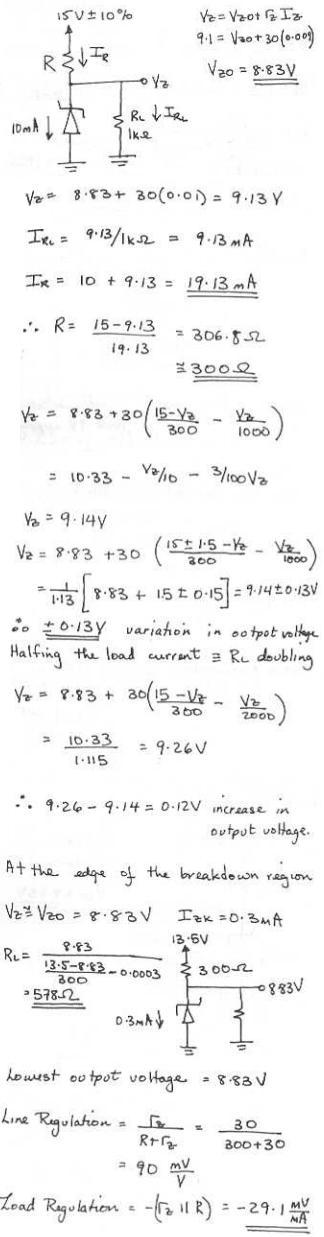 15V ± 10%
R ↓ I_R
V_Z
10mA ↓
R_L ↓ I_RL
1kΩ
V_Z = V_Z0 + r_Z I_Z
9.1 = V_Z0 + 30(0.009)
V_Z0 = 8.83V
V_Z = 8.83 + 30(0.01) = 9.13V
I_RL = 9.13/1kΩ = 9.13 mA
I_R = 10 + 9.13 = 19.13 mA
∴ R = (15-9.13)/19.13 = 306.8Ω
≅ 300Ω
V_Z = 8.83 + 30((15-V_Z)/300 - V_Z/1000)
= 10.33 - V_Z/10 - 3/100 V_Z
V_Z = 9.14V
V_Z = 8.83 + 30 ((15 ± 1.5 - V_Z)/300 - V_Z/1000)
= 1/1.13 [8.83 + 1.5 ± 0.15] = 9.14 ± 0.13V
∴ ± 0.13V variation in output voltage
Halfing the load current ≡ R_L doubling
V_Z = 8.83 + 30((15-V_Z)/300 - V_Z/2000)
= 10.33/1.115 = 9.26V
∴ 9.26 - 9.14 = 0.12V increase in
output voltage.
At the edge of the breakdown region
V_Z ≅ V_Z0 = 8.83V I_ZK = 0.3mA
R_L = 8.83/((13.5-8.83)/300 - 0.0003)
= 578Ω
13.5V
300Ω
8.83V
0.3mA ↓
Lowest output voltage = 8.83V
Line Regulation = r_Z/(R+r_Z) = 30/(300+30)
= 90 mV/V
Load Regulation = -(r_Z || R) = -29.1 mV/mA